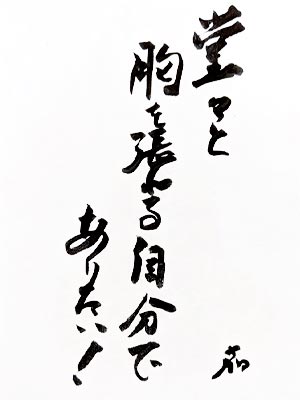 堂々と
胸を張れる自分で
ありたい!